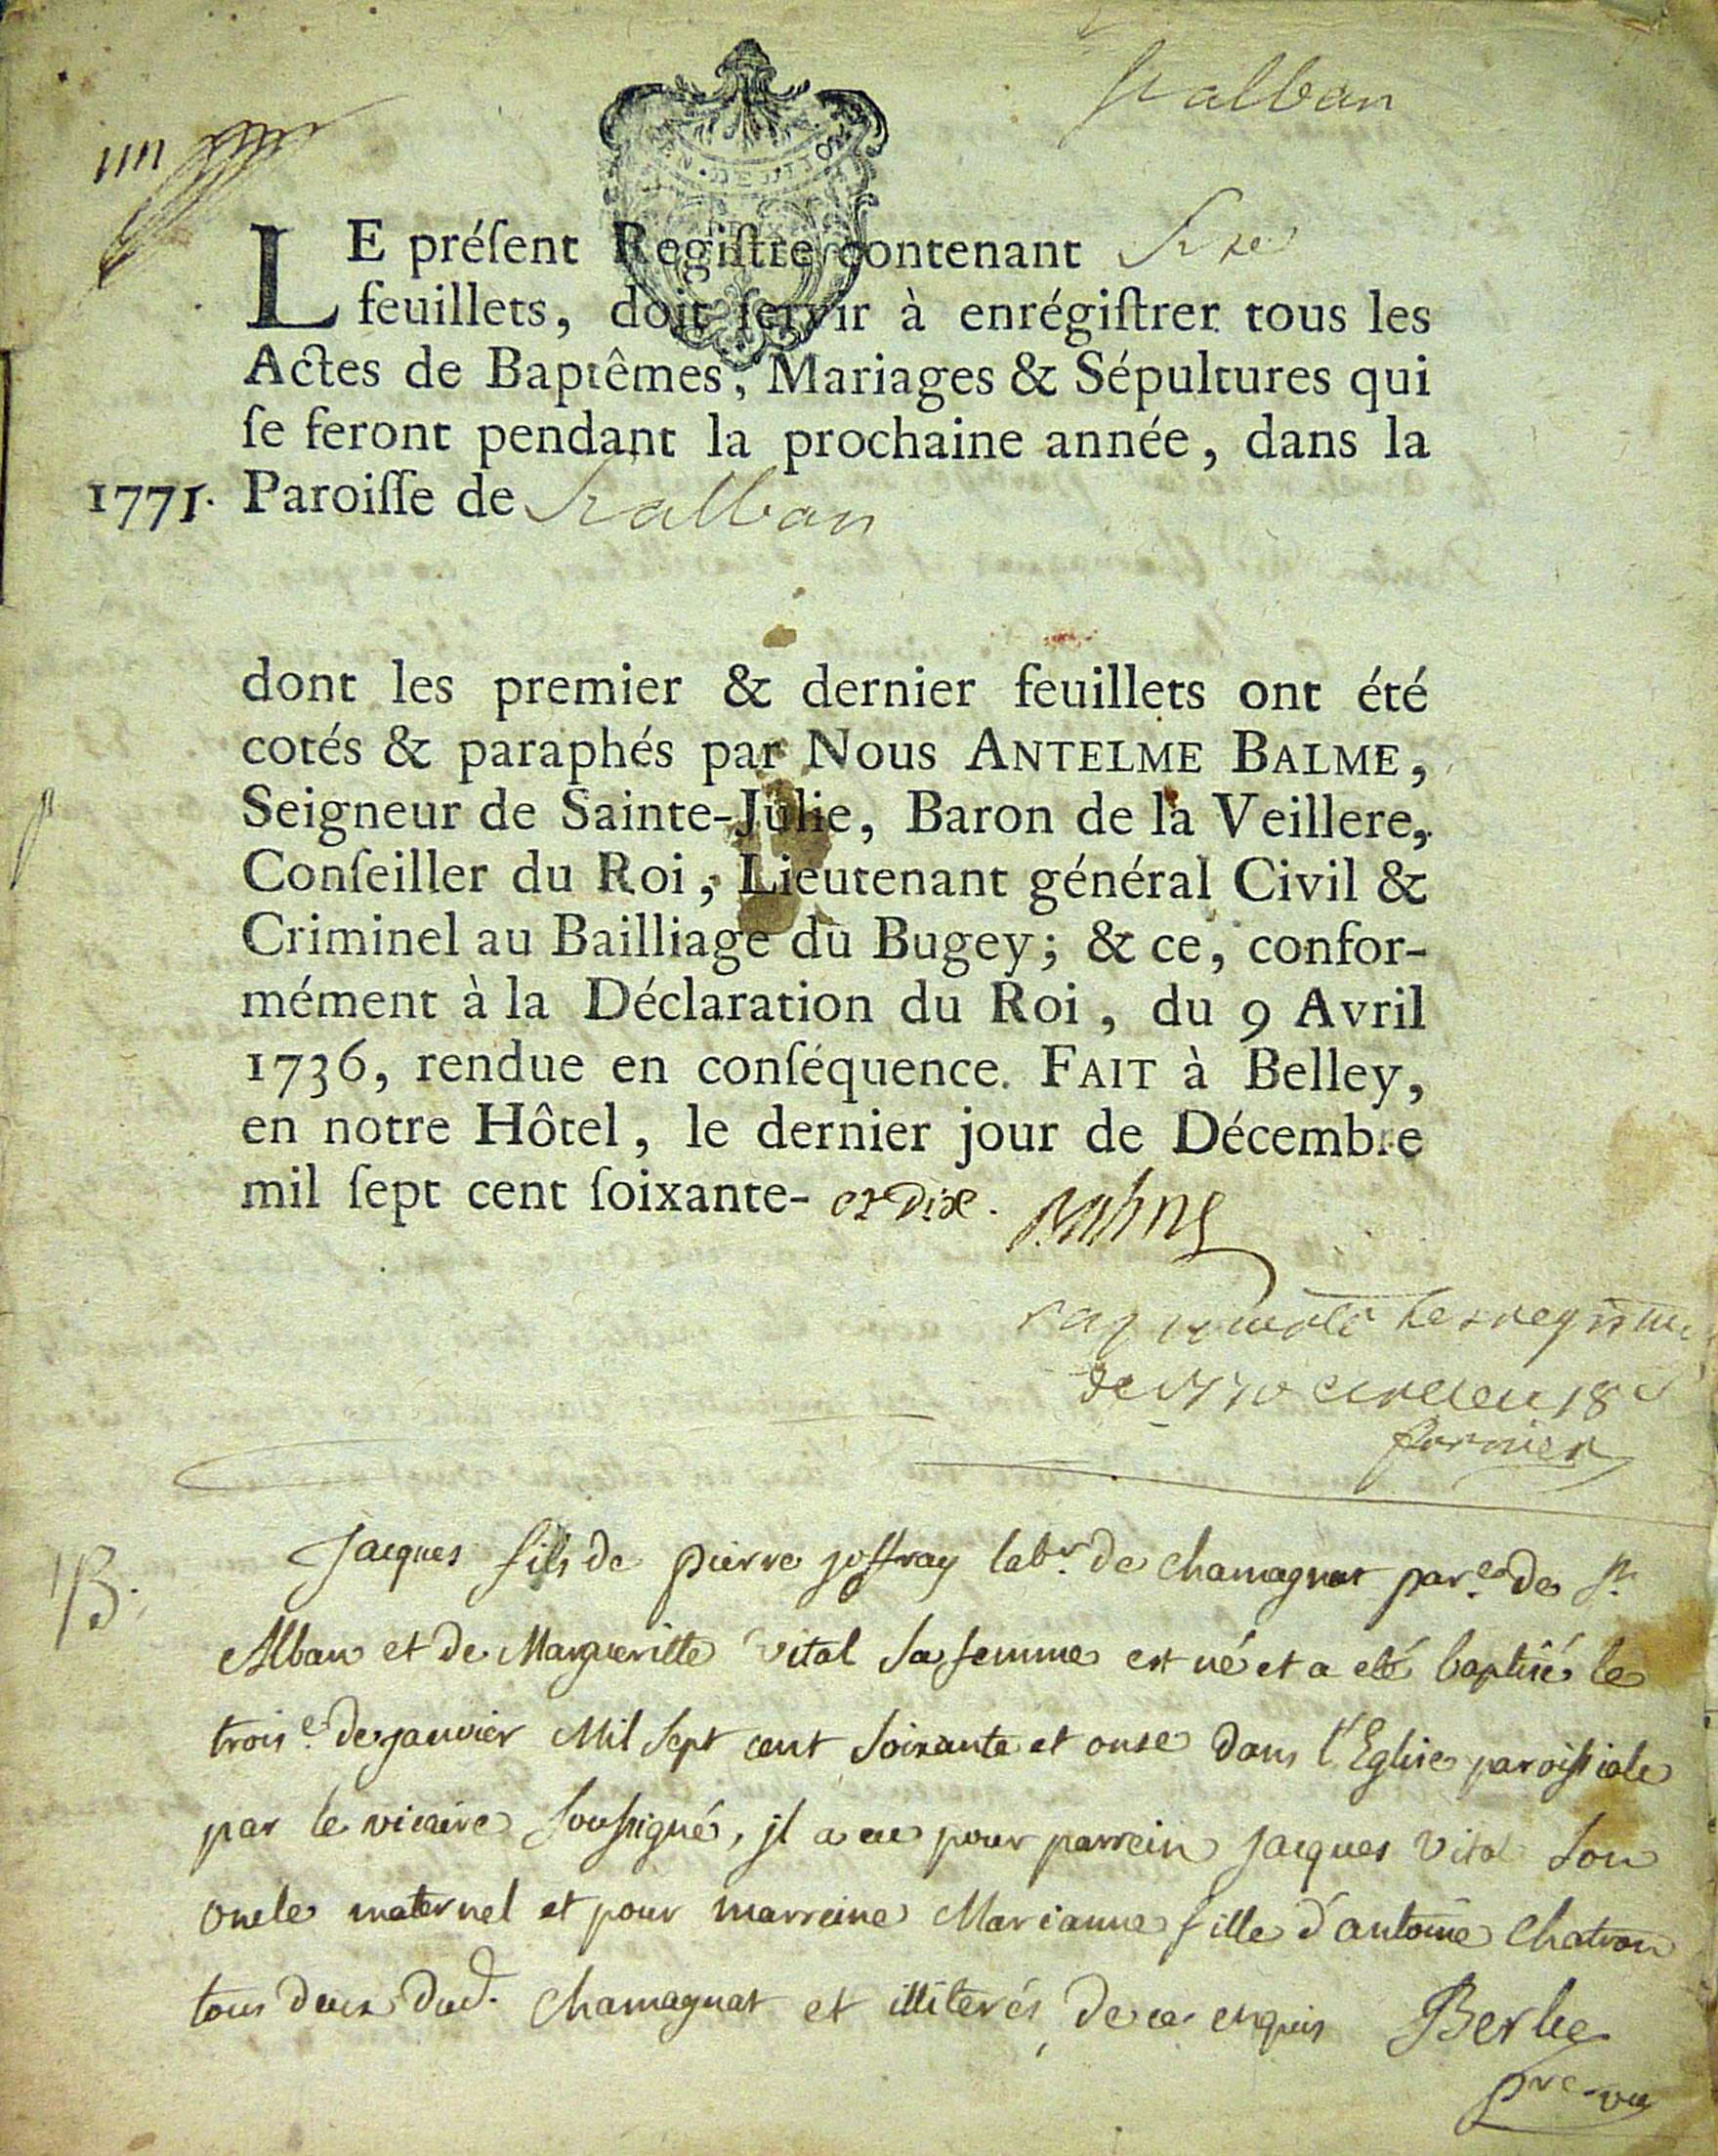 St alban
LE préſent Regiſtre contenant Six
feuillets, doit ſervir à enrégiſtrer tous les
Actes de Baptêmes, Mariages & Sépultures qui
ſe feront pendant la prochaine année, dans la
1771. Paroiſſe de St alban
dont les premier & dernier feuillets ont été
cotés & paraphés par Nous ANTELME BALME,
Seigneur de Sainte-Julie, Baron de la Veillere,
Conſeiller du Roi, Lieutenant général Civil &
Criminel au Bailliage du Bugey; & ce, confor-
mément à la Déclaration du Roi, du 9 Avril
1736, rendue en conſéquence. FAIT à Belley,
en notre Hôtel, le dernier jour de Décembre
mil ſept cent ſoixante- et Dix. Balme
de 1770
B.
Jacques fils de pierre joffray labr. de chamagnat par.e de St.
Alban et de Margueritte vital sa femme est né et a eté baptisé le
trois.e de janvier Mil Sept cent Soixante et onse dans l'Eglise paroissiale
par le vicaire soussigné, jl a eu pour parrein jacques vital son
oncle maternel et pour marreine Marianne fille d'antoine Chatron
tous deux dud. Chamagnat et illiterés de ce enquis Berlie
pre vic